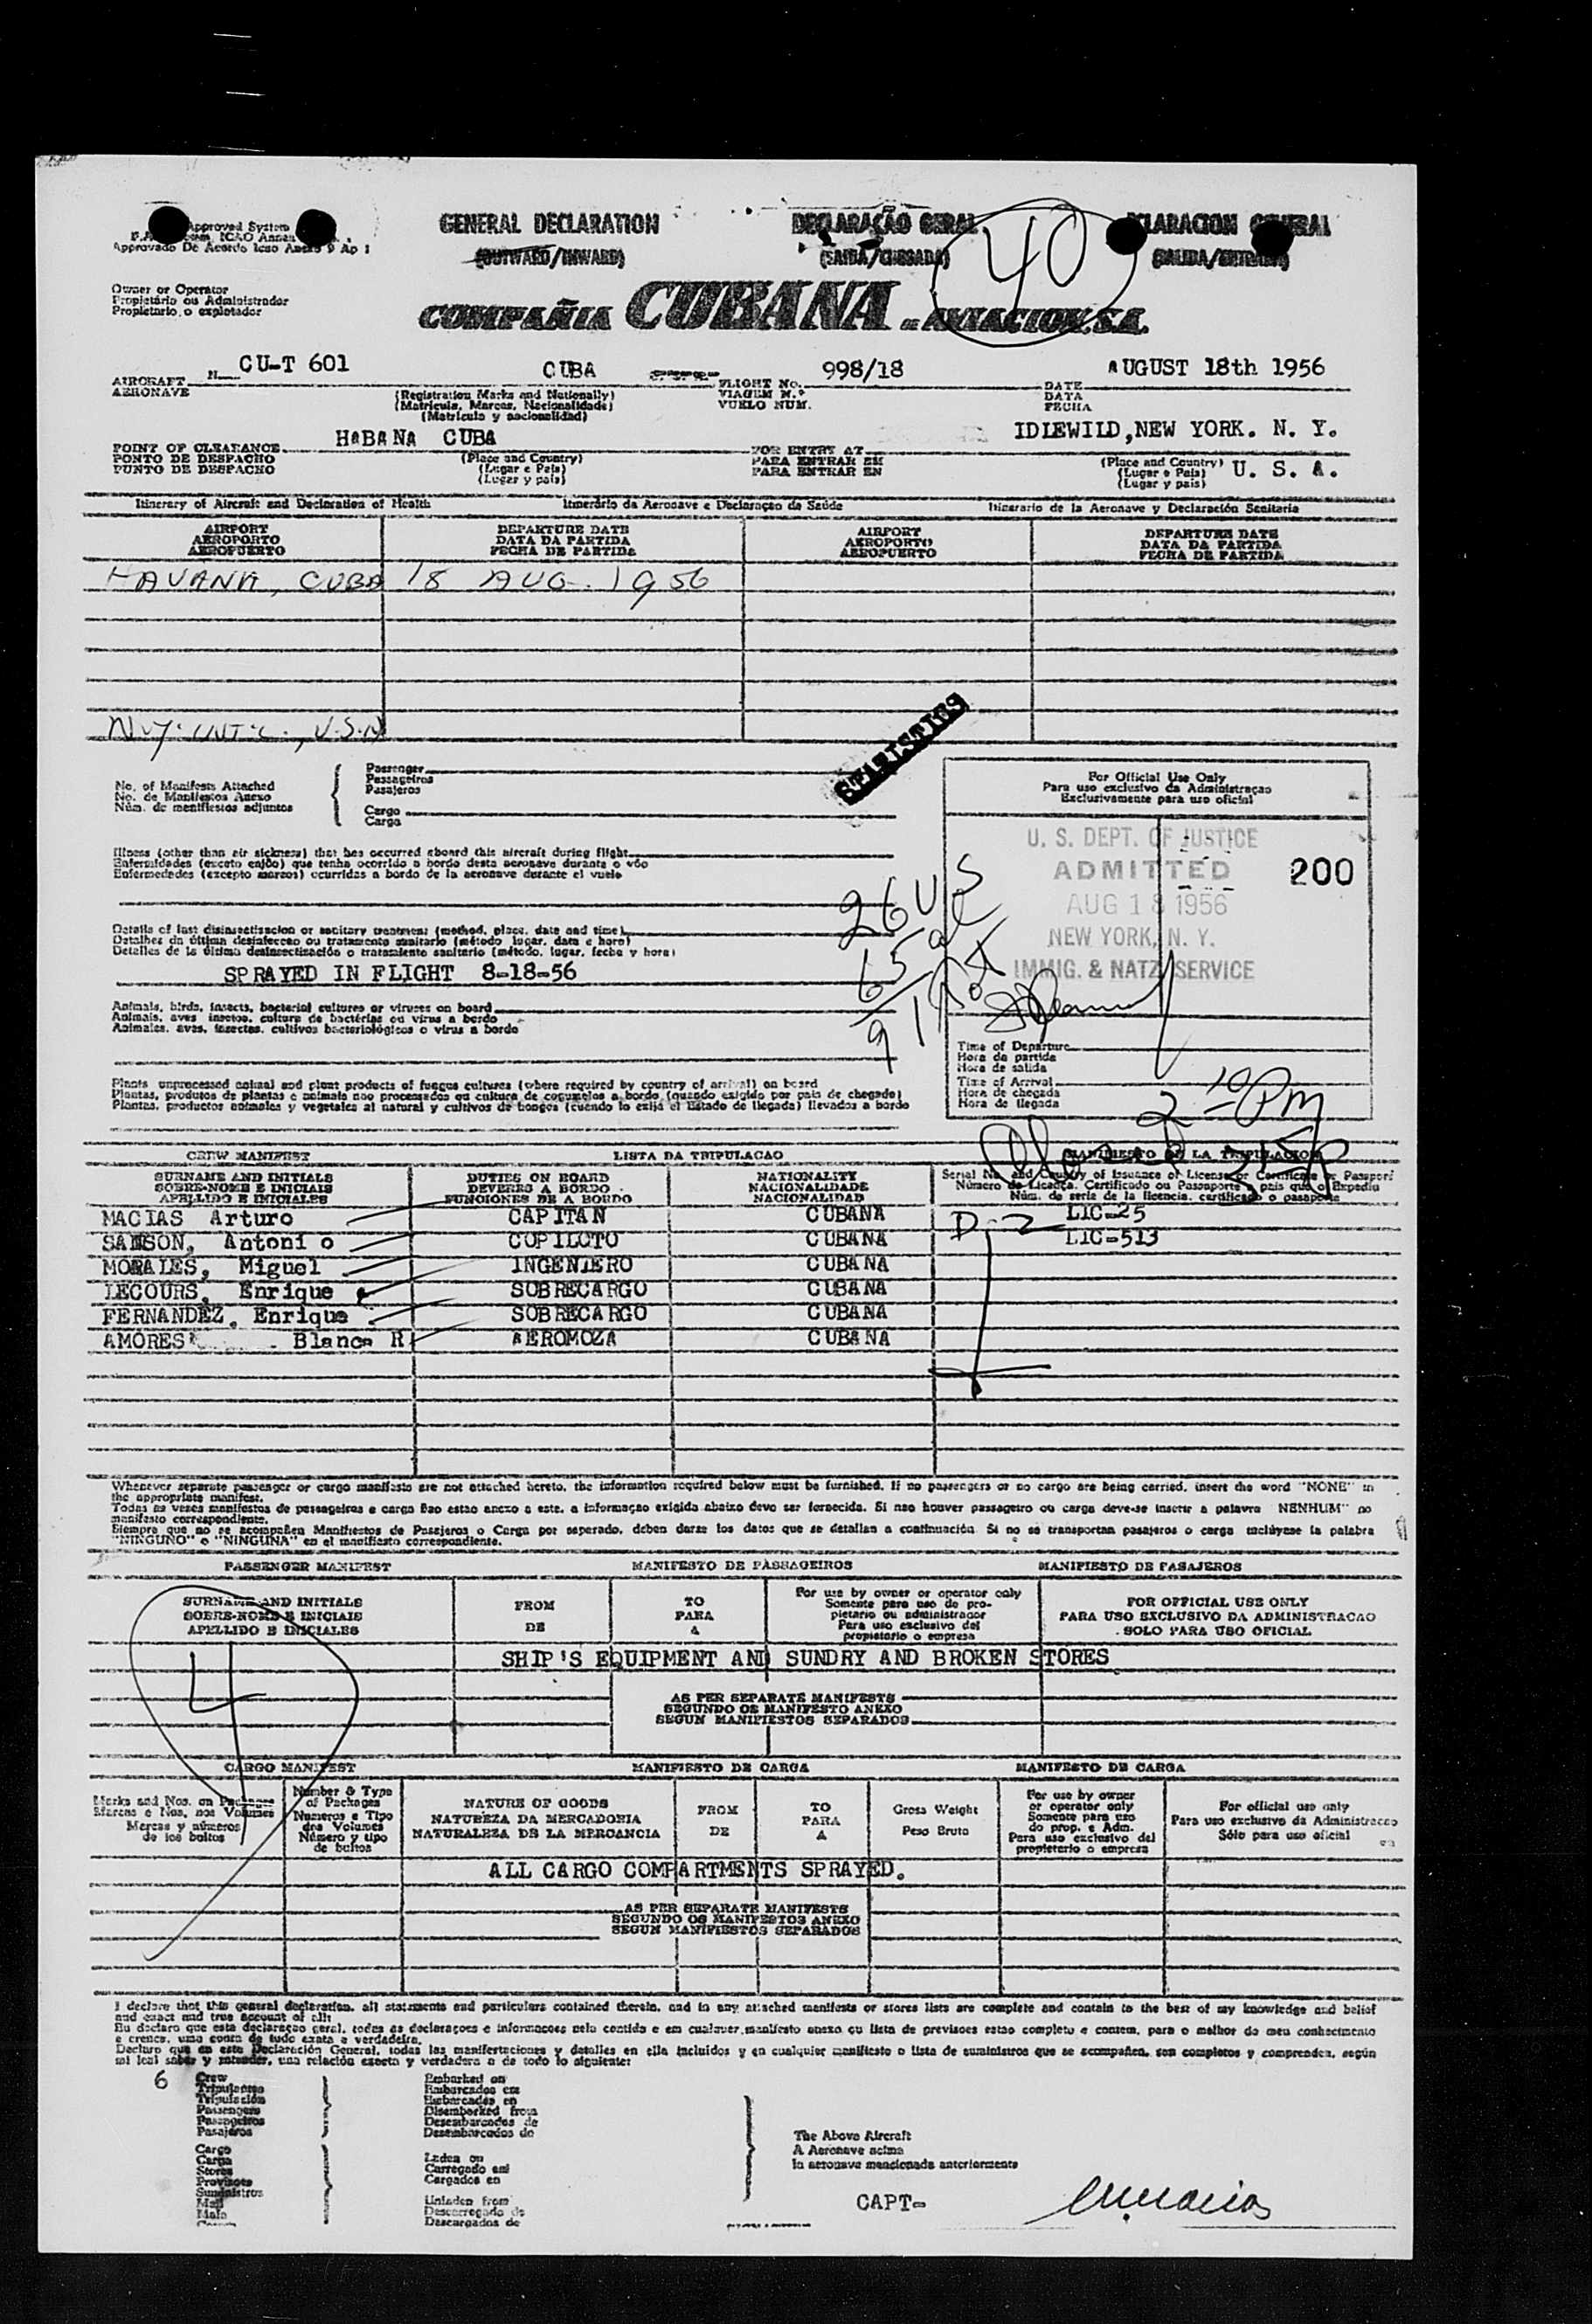 Approved System
ICAO Annex
Approvado De Acordo Icao Anexo 9 Ap 1
GENERAL DECLARATION
(OUTWARD/INWARD)
DECLARAÇÃO GERAL
(SAIDA/CHEGADA)
40
Owner or Operator
Propietário ou Administrador
Propietario o explotador
COMPAÑIA CUBANA DE AVIACION, S.A.
AIRCRAFT CU-T 601 CUBA FLIGHT No. 998/18 DATE AUGUST 18th 1956
AERONAVE (Registration Marks and Nationally) VIAGEM N.º DATA
(Matricula, Marcas, Nacionalidade) VUELO NUM. FECHA
(Matricula y nacionalidad)
POINT OF CLEARANCE HABANA CUBA FOR ENTRY AT IDLEWILD,NEW YORK. N. Y.
PONTO DE DESPACHO (Place and Country) PARA ENTRAR EM (Place and Country) U. S. A.
PUNTO DE DESPACHO (Lugar e Pais) PARA ENTRAR EN (Lugar e Pais)
(Lugar y pais) (Lugar y pais)
Itinerary of Aircraft and Declaration of Health Itinerário da Aeronave e Declaraçao da Saúde Itinerario de la Aeronave y Declaración Sanitaria
AIRPORT DEPARTURE DATE AIRPORT DEPARTURE DATE
AEROPORTO DATA DA PARTIDA AEROPORTO DATA DA PARTIDA
AEROPUERTO FECHA DE PARTIDA AEROPUERTO FECHA DE PARTIDA
HAVANA, CUBA 18 AUG. 1956
STATISTICS
No. of Manifests Attached
No. de Manifestos Anexo
Núm. de manifiestos adjuntos
Passenger
Passageiros
Pasajeros
Cargo
Carga
For Official Use Only
Para uso exclusivo da Administraçao
Exclusivamente para uso oficial
U. S. DEPT. OF JUSTICE
ADMITTED 200
AUG 18 1956
NEW YORK, N. Y.
IMMIG. & NATZ. SERVICE
Illness (other than air sickness) that has occurred aboard this aircraft during flight
Enfermidades (exceto enjôo) que tenha ocorrido a bordo desta aeronave durante o vôo
Enfermedades (excepto mareos) ocurridas a bordo de la aeronave durante el vuelo
26 US
65 al
91
Details of last disinsectisacion or sanitary treatment (method, place, date and time)
Detalhes da última desinfeccao ou tratamento sanitario (método lugar, data e hora)
Detalles de la última desinsectización o tratamiento sanitario (método, lugar, fecha y hora)
SPRAYED IN FLIGHT 8-18-56
Animals, birds, insects, bacterial cultures or viruses on board
Animais, aves insetos, cultura de bactérias ou virus a bordo
Animales, aves, insectos, cultivos bacteriológicos o virus a bordo
Time of Departure
Hora da partida
Hora de salida
Time of Arrival
Hora de chegada
Hora de llegada
2 10 PM
Plants unprocessed animal and plant products of fungus cultures (where required by country of arrival) on board
Plantas, produtos de plantas e animais nao processados ou cultura de cogumelos a bordo (quando exigido por pais de chegada)
Plantas, productos animales y vegetales al natural y cultivos de hongos (cuando lo exija el Estado de llegada) llevados a bordo
CREW MANIFEST LISTA DA TRIPULACAO MANIFIESTO DE LA TRIPULACION
SURNAME AND INITIALS DUTIES ON BOARD NATIONALITY Serial No. and Country of Issuance of License or Certificate or Passport
SOBRE-NOME E INICIAIS DEVERES A BORDO NACIONALIDADE Número de Licença, Certificado ou Passaporte y pais que o Expediu
APELLIDO E INICIALES FUNCIONES DE A BORDO NACIONALIDAD Núm. de serie de la licencia, certificado o pasaporte
MACIAS Arturo CAPITAN CUBANA D-2 LIC-25
SAMSON, Antonio COPILOTO CUBANA LIC-513
MORALES, Miguel INGENIERO CUBANA
LECOURS, Enrique SOBRECARGO CUBANA
FERNANDEZ, Enrique SOBRECARGO CUBANA
AMORES Blanca R AEROMOZA CUBANA
Whenever separate passenger or cargo manifests are not attached hereto, the information required below must be furnished. If no passengers or no cargo are being carried, insert the word "NONE" in
the appropriate manifest.
Todas as vezes manifestos de passageiros e carga nao estao anexo a este, a informaçao exigida abaixo deve ser fornecida. Si nao houver passageiro ou carga deve-se inserir a palavra NENHUM" no
manifesto correspondiente.
Siempre que no se acompañen Manifiestos de Pasajeros o Carga por separado, deben darse los datos que se detallan a continuación. Si no se transportan pasajeros o carga inclúyase la palabra
"NINGUNO" o "NINGUNA" en el manifiesto correspondiente.
PASSENGER MANIFEST MANIFESTO DE PASSAGEIROS MANIFIESTO DE PASAJEROS
SURNAME AND INITIALS FROM TO For use by owner or operator only FOR OFFICIAL USE ONLY
SOBRE-NOME E INICIAIS DE PARA Somente para uso de pro- PARA USO EXCLUSIVO DA ADMINISTRACAO
APELLIDO E INICIALES A pietario ou administrador SOLO PARA USO OFICIAL
Para uso exclusivo del
propietario o empresa
4
SHIP'S EQUIPMENT AND SUNDRY AND BROKEN STORES
AS PER SEPARATE MANIFESTS
SEGUNDO OS MANIFESTO ANEXO
SEGUN MANIFIESTOS SEPARADOS
CARGO MANIFEST MANIFIESTO DE CARGA MANIFESTO DE CARGA
Marks and Nos. on Packages
Marcas e Nos. nos Volumes
Marcas y números
de los bultos
Number & Type
of Packages
Numeros e Tipo
dos Volumes
Número y tipo
de bultos
NATURE OF GOODS
NATUREZA DA MERCADORIA
NATURALEZA DE LA MERCANCIA
FROM
DE
TO
PARA
A
Gross Weight
Peso Bruto
For use by owner
or operator only
Somente para uso
do prop. e Adm.
Para uso exclusivo del
propietario o empresa
For official use only
Para uso exclusivo da Administracao
Sólo para uso oficial
ALL CARGO COMPARTMENTS SPRAYED.
AS PER SEPARATE MANIFESTS
SEGUNDO OS MANIFESTOS ANEXO
SEGUN MANIFIESTOS SEPARADOS
I declare that this general declaration, all statements and particulars contained therein, and in any attached manifests or stores lists are complete and contain to the best of my knowledge and belief
and exact and true account of all:
Eu declaro que esta declaraçao geral, todas as declaraçoes e informacoes nela contida e em cualquer manifesto anexo ou lista de previsoes estao completo e contem, para o melhor do meu conhecimento
e crenca, uma conta de tudo exata e verdadeira.
Declaro que en esta Declaración General, todas las manifestaciones y detalles en ella incluidos y en cualquier manifiesto o lista de suministros que se acompañen, son completos y comprenden, según
mi leal saber y entender, una relación exacta y verdadera a de todo lo siguiente:
6 Crew
Tripulantes
Tripulación
Passengers
Passageiros
Pasajeros
Embarked on
Embarcados em
Embarcados en
Disembarked from
Desembarcados de
Desembarcados de
Cargo
Carga
Stores
Provisoes
Suministros
Mail
Mala
Laden on
Carregado em
Cargados en
Unladen from
Descarregado de
Descargados de
The Above Aircraft
A Aeronave acima
la aeronave mencionada anteriormente
CAPT-